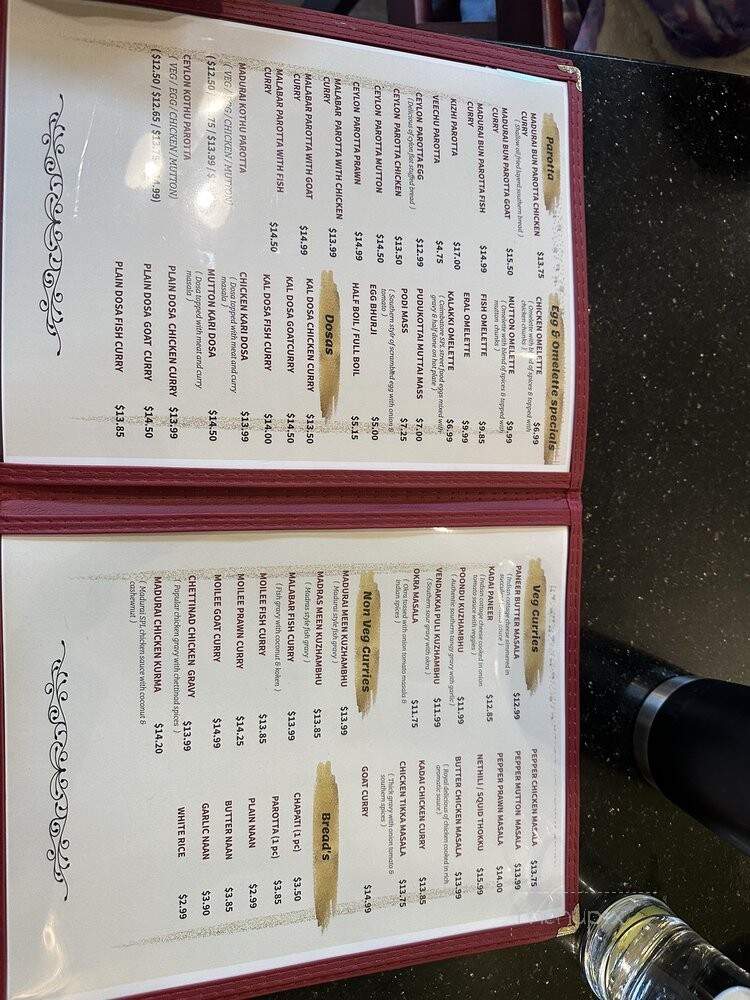 Parotta
MADURAI BUN PAROTTA CHICKEN CURRY $13.75
( Shallow oil fried layerd southern bread )
MADURAI BUN PAROTTA GOAT CURRY $15.50
MADURAI BUN PAROTTA FISH CURRY $14.99
KIZHI PAROTTA $17.00
VEECHU PAROTTA $4.75
CEYLON PAROTTA EGG $12.99
( Delicious of cylon flat stuffed bread )
CEYLON PAROTTA CHICKEN $13.50
CEYLON PAROTTA MUTTON $14.50
CEYLON PAROTTA PRAWN $14.99
MALABAR PAROTTA WITH CHICKEN CURRY $13.99
MALABAR PAROTTA WITH GOAT CURRY $14.99
MALABAR PAROTTA WITH FISH CURRY $14.50
MADURAI KOTHU PAROTTA
( VEG / EGG / CHICKEN / MUTTON )
( $12.50 / $13.99 /
CEYLON KOTHU PAROTTA
( VEG / EGG / CHICKEN / MUTTON )
( $12.50 / $12.65 /
Egg & Omelette specials
CHICKEN OMELETTE $6.99
( Omelette with of spices & topped with
chicken chunks )
MUTTON OMELETTE $9.99
( Omelette with blend of spices & topped with
mutton chunks )
FISH OMELETTE $9.85
ERAL OMELETTE $9.99
KALAKKI OMELETTE $6.99
( Coimbatore SPL street food eggs mixed with
gravy & half done on hot plate )
PUDUKOTTAI MUTTAI MASS $7.00
PODI MASS $7.25
( Southern style of scrambled egg with onion &
tomato )
EGG BHURJI $5.00
HALF BOIL / FULL BOIL $5.15
Dosas
KAL DOSA CHICKEN CURRY $13.50
KAL DOSA GOATCURRY $14.50
KAL DOSA FISH CURRY $14.00
CHICKEN KARI DOSA $13.99
( Dosa topped with meat and curry
masala )
MUTTON KARI DOSA $14.50
( Dosa topped with meat and curry
masala )
PLAIN DOSA CHICKEN CURRY $13.99
PLAIN DOSA GOAT CURRY $14.50
PLAIN DOSA FISH CURRY $13.85
Veg Curries
PANEER BUTTER MASALA $12.99
( Indian cottage cheese simmered in
KADAI PANEER $12.85
( Indian cottage cheese cooked in onion
tomato sauce with veggies )
POONDU KUZHAMBU $11.99
( Authentic southern tangy gravy with garlic )
VENDAKKAI PULI KUZHAMBU $11.99
( Southern sour gravy with okra )
OKRA MASALA $11.75
( Okra tossed with onion tomato masala &
indian spices )
Non Veg Curries
MADURAI MEEN KUZHAMBHU $13.99
( Madurai style fish gravy )
MADRAS MEEN KUZHAMBHU $13.85
( Madras style fish gravy )
MALABAR FISH CURRY $13.99
( Fish gravy with coconut & kokem )
MOILEE FISH CURRY $13.85
MOILEE PRAWN CURRY $14.25
MOILEE GOAT CURRY $14.99
CHETTINAD CHICKEN GRAVY $13.99
( Popular chicken gravy with chettinad spices )
MADURAI CHICKEN KURMA $14.20
( Madurai SPL chicken sauce with coconut &
cashewnut )
PEPPER CHICKEN MASALA $13.75
PEPPER MUTTON MASALA $13.99
PEPPER PRAWN MASALA $14.00
NETHILI / SQUID THOKKU $15.99
BUTTER CHICKEN MASALA $13.99
( Royal delicious of chicken cooked in rich
aromatic sauce )
KADAI CHICKEN CURRY $13.85
CHICKEN TIKKA MASALA $13.75
( Thick gravy with onion tomato &
southern spices )
GOAT CURRY $14.99
Bread's
CHAPATI (1 pc) $3.50
PAROTTA (1 pc) $3.85
PLAIN NAAN $2.99
BUTTER NAAN $3.85
GARLIC NAAN $3.90
WHITE RICE $2.99